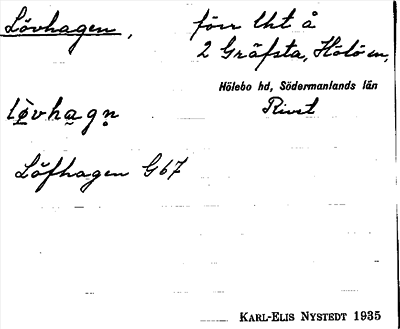 Lövhagen, förr lht å
2 Gräfsta, Hölö sn,
Hölebo hd, Södermanlands län
Rivet
lö̀vhagn̥
Löfhagen G67
KARL-ELIS NYSTEDT 1935